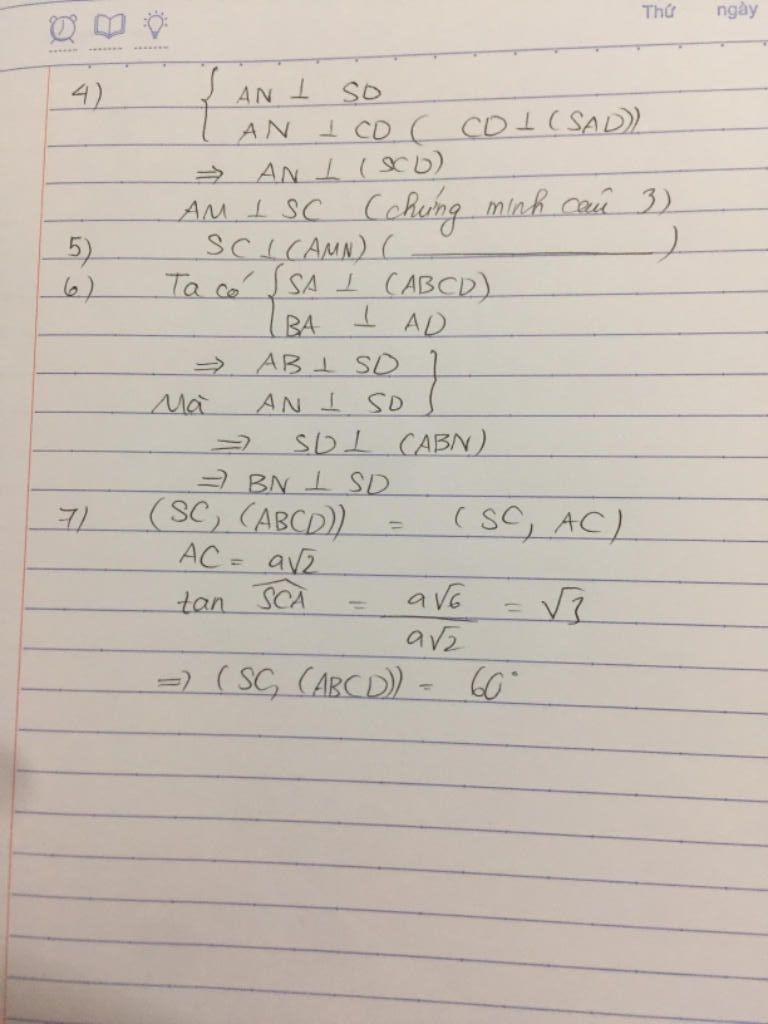 Thứ ngày
4) { AN ⊥ SD
AN ⊥ CD ( CD ⊥ (SAD))
⇒ AN ⊥ (SCD)
AM ⊥ SC (chứng minh câu 3)
5) SC ⊥ (AMN) ( ———— )
6) Ta có { SA ⊥ (ABCD)
BA ⊥ AD
⇒ AB ⊥ SD }
Mà AN ⊥ SD
⇒ SD ⊥ (ABN)
⇒ BN ⊥ SD
7) (SC, (ABCD)) = (SC, AC)
AC = a√2
tan SCA = a√6 / a√2 = √3
⇒ (SC, (ABCD)) = 60°